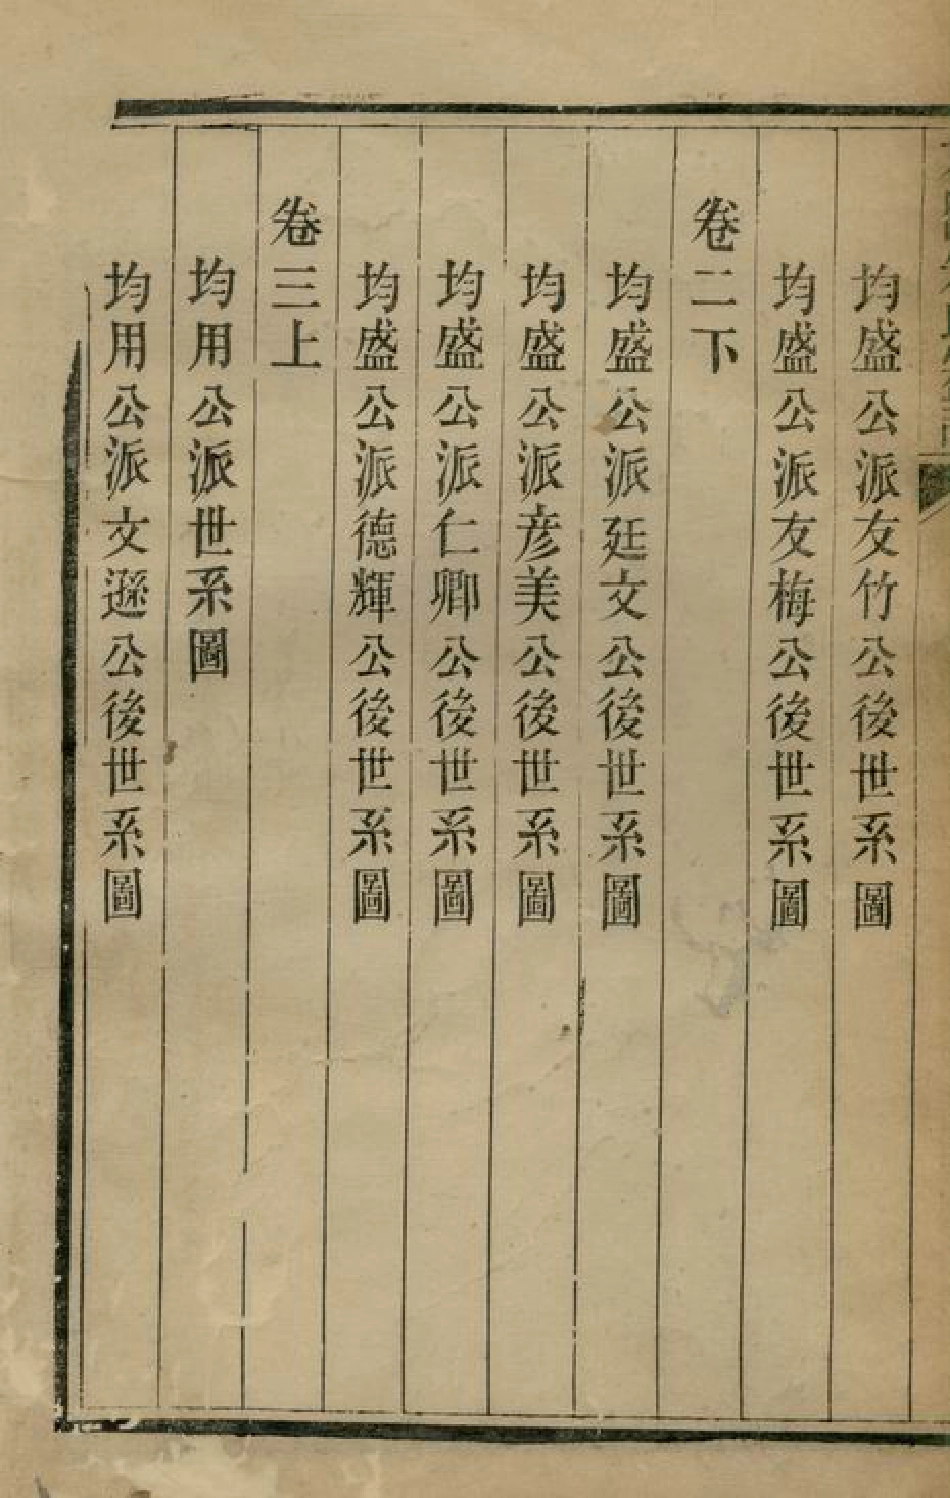 均盛公派友竹公後世系圖
均盛公派友梅公後世系圖
卷二下
均盛公派廷文公後世系圖
均盛公派彥美公後世系圖
均盛公派仁卿公後世系圖
均盛公派德輝公後世系圖
卷三上
均用公派世系圖
均用公派文遜公後世系圖